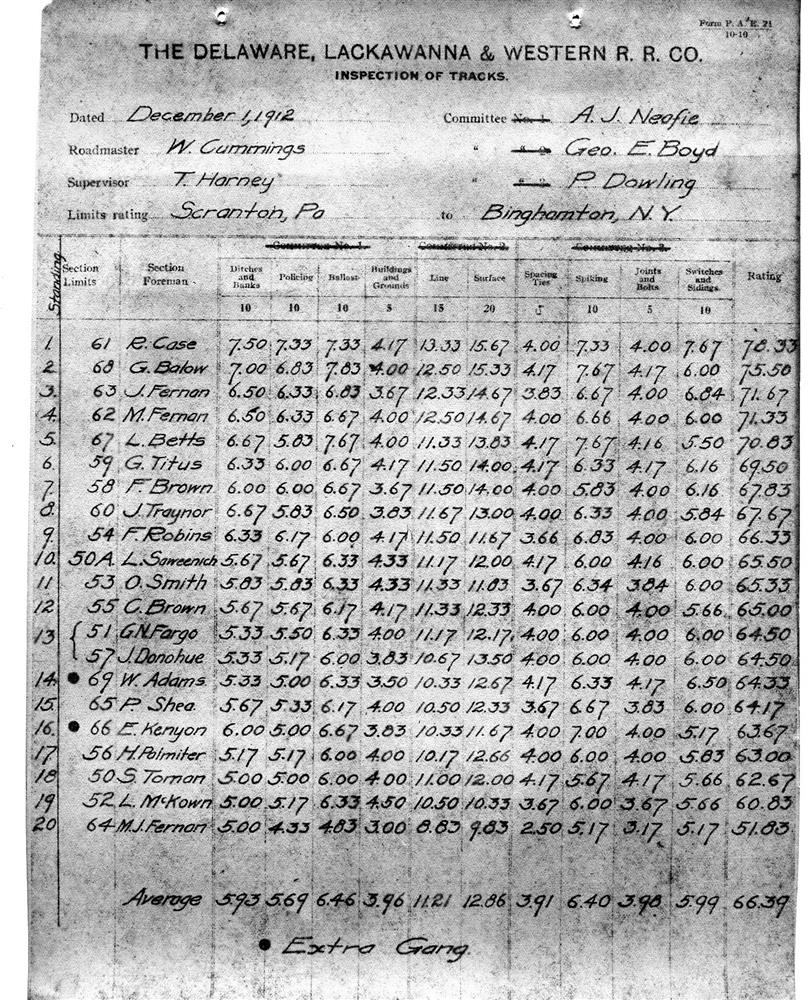 Form P. A. R. 21
10-10
THE DELAWARE, LACKAWANNA & WESTERN R. R. CO.
INSPECTION OF TRACKS.
Dated December 1, 1912 Committee No. 1. A. J. Neafie
Roadmaster W. Cummings " " 2. Geo. E. Boyd
Supervisor T. Harney " " 3. P. Dowling
Limits rating Scranton, Pa to Binghamton, N.Y.
Committee No. 1. Committee No. 2. Committee No. 3.
Standing Section Limits Section Foreman Ditches and Banks Policing Ballast Buildings and Grounds Line Surface Spacing Ties Spiking Joints and Bolts Switches and Sidings Rating
10 10 10 5 15 20 5 10 5 10
1. 61 R. Case 7.50 7.33 7.33 4.17 13.33 15.67 4.00 7.33 4.00 7.67 78.33
2. 68 G. Balow 7.00 6.83 7.83 4.00 12.50 15.33 4.17 7.67 4.17 6.00 75.50
3. 63 J. Fernan 6.50 6.33 6.83 3.67 12.33 14.67 3.83 6.67 4.00 6.84 71.67
4. 62 M. Fernan 6.50 6.33 6.67 4.00 12.50 14.67 4.00 6.66 4.00 6.00 71.33
5. 67 L. Betts 6.67 5.83 7.67 4.00 11.33 13.83 4.17 7.67 4.16 5.50 70.83
6. 59 G. Titus 6.33 6.00 6.67 4.17 11.50 14.00 4.17 6.33 4.17 6.16 69.50
7. 58 F. Brown 6.00 6.00 6.67 3.67 11.50 14.00 4.00 5.83 4.00 6.16 67.83
8. 60 J. Traynor 6.67 5.83 6.50 3.83 11.67 13.00 4.00 6.33 4.00 5.84 67.67
9. 54 F. Robins 6.33 6.17 6.00 4.17 11.50 11.67 3.66 6.83 4.00 6.00 66.33
10. 50A L. Saweenich 5.67 5.67 6.33 4.33 11.17 12.00 4.17 6.00 4.16 6.00 65.50
11 53 O. Smith 5.83 5.83 6.33 4.33 11.33 11.83 3.67 6.34 3.84 6.00 65.33
12 55 C. Brown 5.67 5.67 6.17 4.17 11.33 12.33 4.00 6.00 4.00 5.66 65.00
13 { 51 G.N. Fargo 5.33 5.50 6.33 4.00 11.17 12.17 4.00 6.00 4.00 6.00 64.50
57 J. Donohue 5.33 5.17 6.00 3.83 10.67 13.50 4.00 6.00 4.00 6.00 64.50
14. ● 69 W. Adams 5.33 5.00 6.33 3.50 10.33 12.67 4.17 6.33 4.17 6.50 64.33
15. 65 P. Shea 5.67 5.33 6.17 4.00 10.50 12.33 3.67 6.67 3.83 6.00 64.17
16. ● 66 E. Kenyon 6.00 5.00 6.67 3.83 10.33 11.67 4.00 7.00 4.00 5.17 63.67
17 56 H. Palmiter 5.17 5.17 6.00 4.00 10.17 12.66 4.00 6.00 4.00 5.83 63.00
18 50 S. Toman 5.00 5.00 6.00 4.00 11.00 12.00 4.17 5.67 4.17 5.66 62.67
19 52 L. McKown 5.00 5.17 6.33 4.50 10.50 10.33 3.67 6.00 3.67 5.66 60.83
20 64 M.J. Fernan 5.00 4.33 4.83 3.00 8.83 9.83 2.50 5.17 3.17 5.17 51.83
Average 5.93 5.69 6.46 3.96 11.21 12.86 3.91 6.40 3.98 5.99 66.39
● Extra Gang.